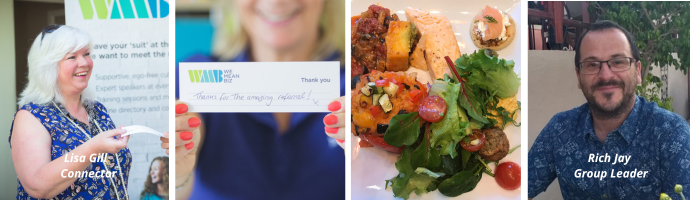 WMB
eave your 'suit' at th
we want to meet the
Supportive, ego-free
Expert speakers at ever
Lisa Gill
Connector
WMB WE
MEAN
BIZ
Thank you
Thanks for the amazing referral! x
Rich Jay
Group Leader